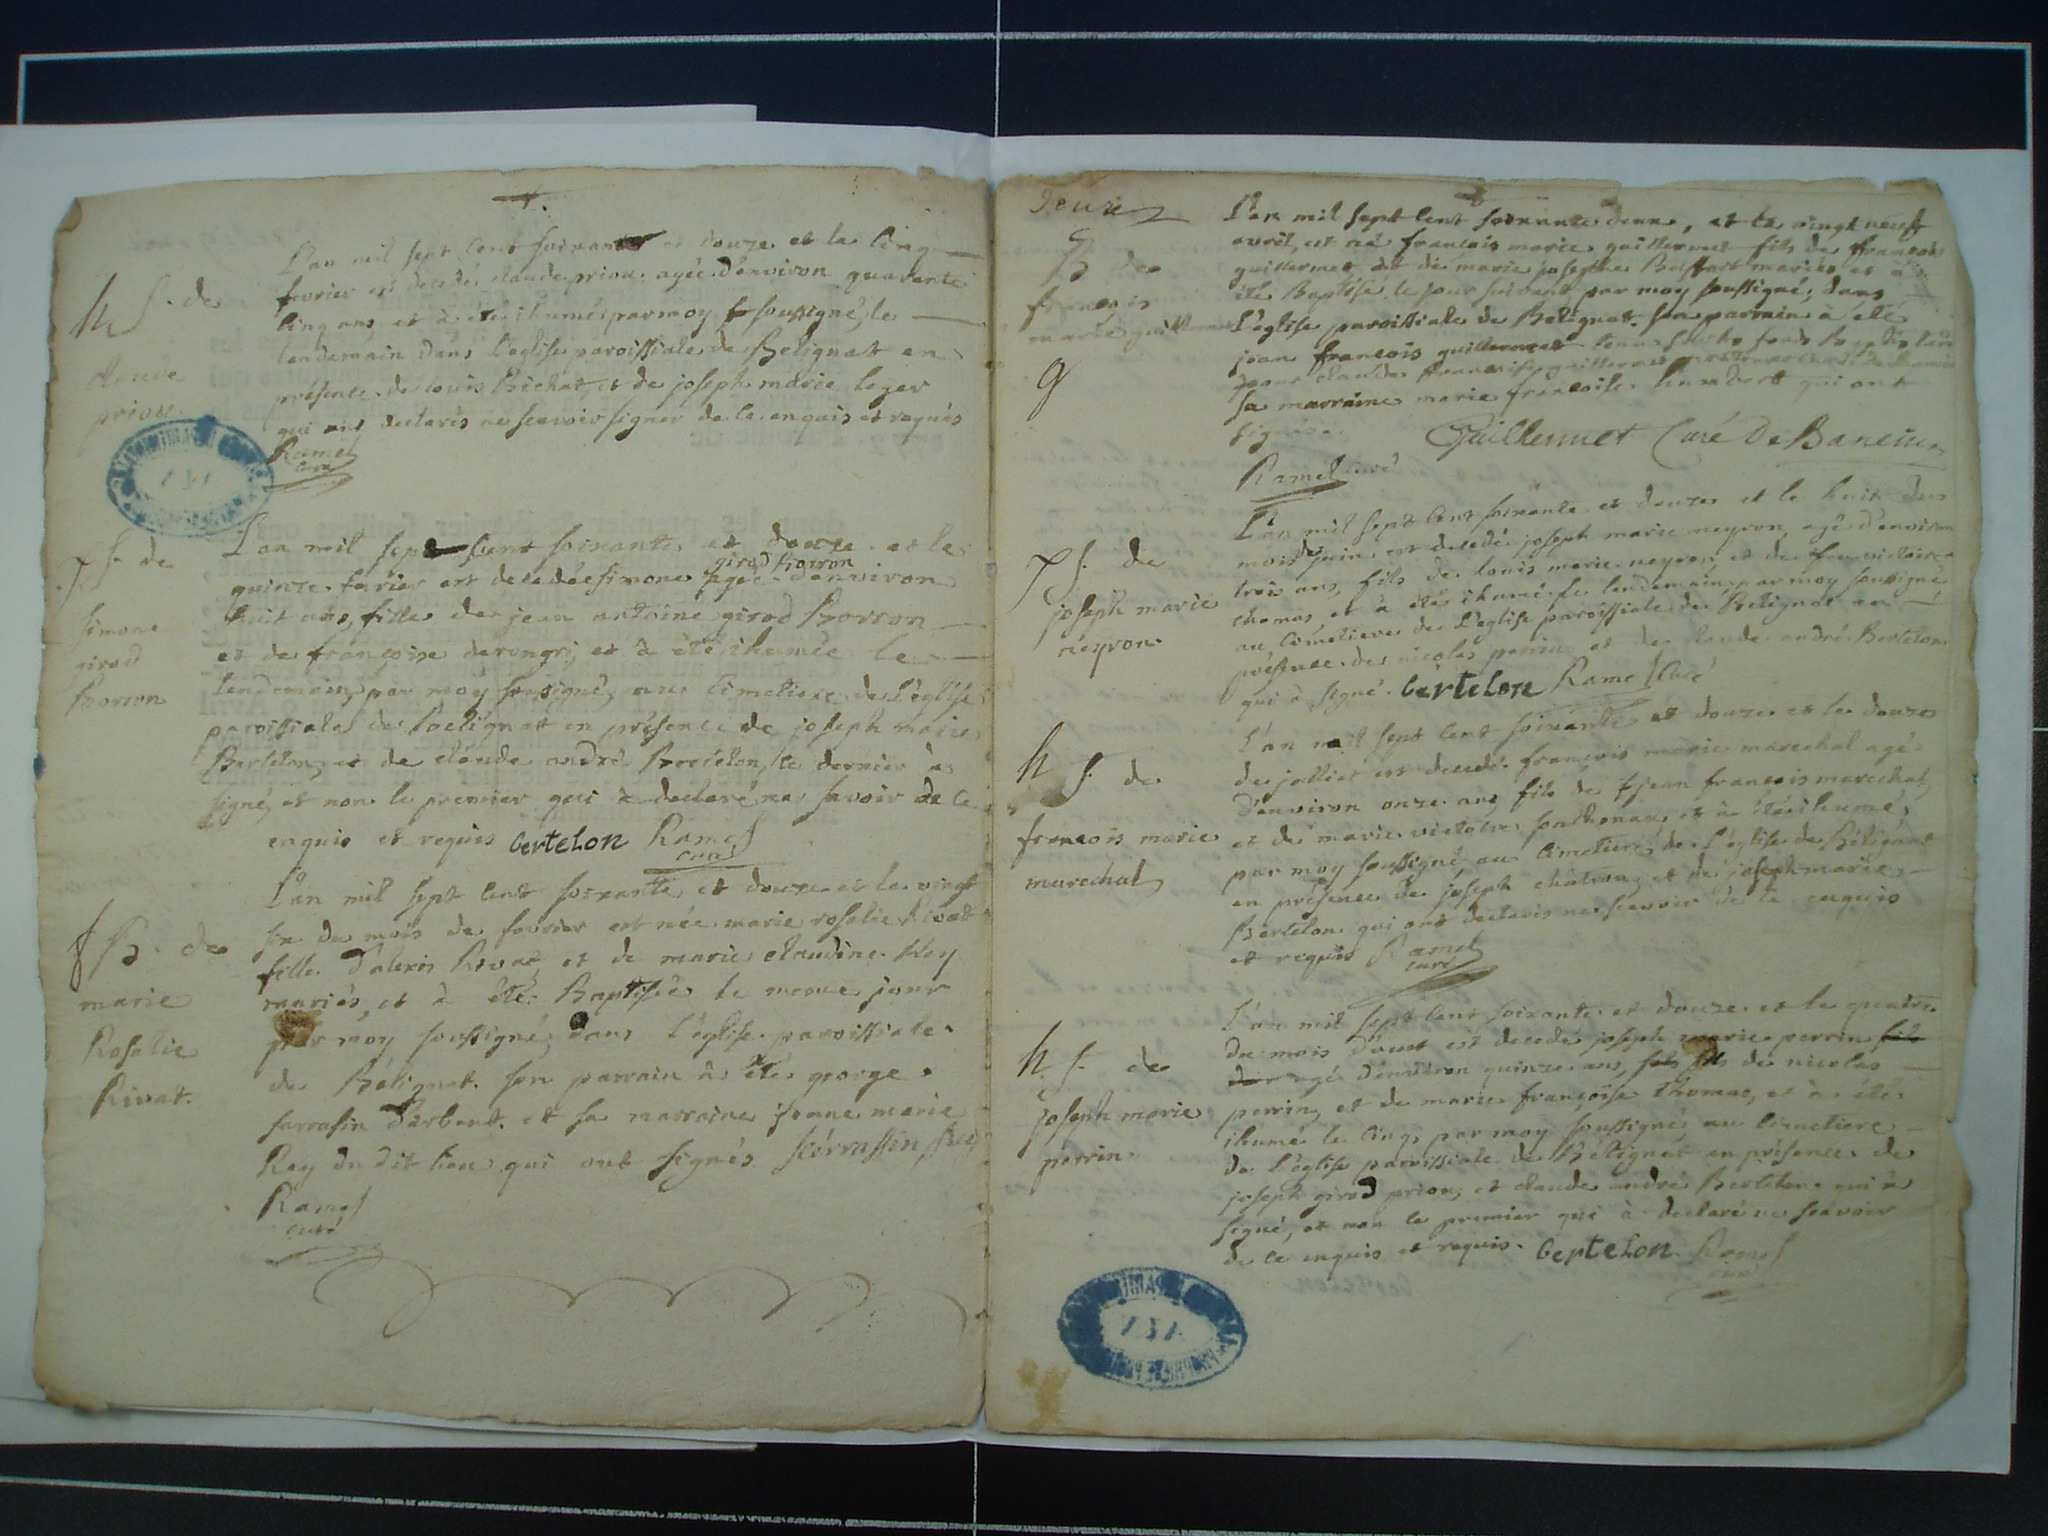 h S. de
claude
priou.
L'an mil sept cent soixante et douze et le cinq
fevrier est decedé claude priou agée d'environ quarante
cinq ans et à été ihumé par moy soussigné, le
lendemain dans l'eglise paroissiale de Belignat en
présence de louis Bichat, et de joseph marie leger
qui ont declarés ne scavoir signer de ce enquis et requis
Ramel
curé
S. de
simone
girod
Borron
L'an mil sept cent soixante et douze et le
girod Borron
quinze fevrier est decedée simone agée d'environ
huit ans, fille de jean antoine girod Borron
et de françoise derongry et à été ihumée le
lendemain, par moy soussigné, au cimetiere de l'eglise
paroissiale de Belignat en présence de joseph marie
Bertelon, et de claude andré Bertelon, le dernier à
signé, et non le premier qui à declaré ne savoir de ce
enquis et requis bertelon Ramel
curé
B. de
marie
Rosalie
Rivat.
L'an mil sept cent soixante et douze et le vingt
six du mois de fevrier est née marie rosalie Rivat
fille d'alexis Rivat et de marie claudine Rey
mariés, et à été Baptisée le meme jour
par moy soussigné, dans l'église paroissiale
de Bélignat. son parrain à été george
sarrasin d'arbent. et sa marraine jeanne marie
Rey du dit lieu qui ont signés
Ramel
curé
Deuze
B de
françois
marie guillermet
g
L'an mil sept cent soixante douze, et le vingt neuf
avril, est né françois marie guillermet fils de françois
guillermet et de marie josephe Buffart mariés et à
été Baptisé le jour suivant par moy soussigné, dans
L'église paroissiale de Belignat. son parrain à été
jean françois guillermet
sa marraine marie françoise humbert qui ont
signés.
Guillermet Curé de
Ramel curé
S. de
joseph marie
neyron.
L'an mil sept cent soixante et douze et le huit du
mois de juin est decedé joseph marie neyron agé d'environ
trois ans, fils de louis marie neyron, et de
thomas et à été ihumé le lendemain, par moy soussigné
au cimetiere de l'eglise paroissiale de Belignat en
présence de nicolas perrin et de claude andré Bertelon
qui à signé. bertelon Ramel Curé
h S. de
françois marie
marechal
L'an mil sept cent soixante et douze et le douze
de julliet est decedé françois marie marechal agé
d'environ onze ans fils de jean françois marechal,
et de marie victoire et à été ihumé,
par moy soussigné, au cimetiere de l'église de Bélignat
en présence de joseph et de joseph marie
Bertelon qui ont declarés ne scavoir de ce enquis
et requis Ramel
curé
h. S. de
joseph marie
perrin.
L'an mil sept cent soixante et douze et le quatre
du mois d'aout est decedé joseph marie perrin
agé d'environ quinze ans, fils de nicolas
perrin, et de marie françoise thomas, et à été
ihumé le cinq, par moy soussigné au cimetiere
de l'église paroissiale de Bélignat en présence de
joseph girod priou, et claude andré Bertelon qui à
signé, et non le premier qui à declaré ne scavoir
de ce enquis et requis. bertelon Ramel
curé